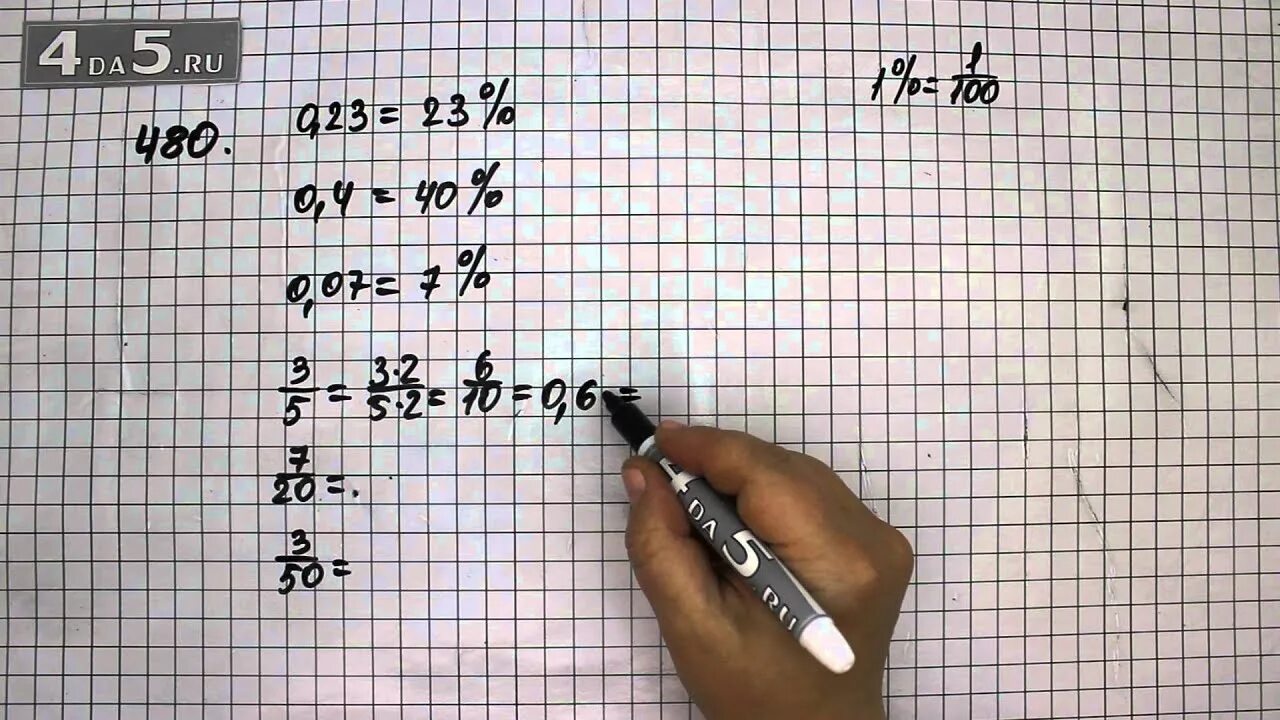 4DA5.RU
1% = 1/100
480.
0,23 = 23%
0,4 = 40%
0,07 = 7%
3/5 = 3·2/5·2 = 6/10 = 0,6 =
7/20 = .
3/50 =
4DA5.RU